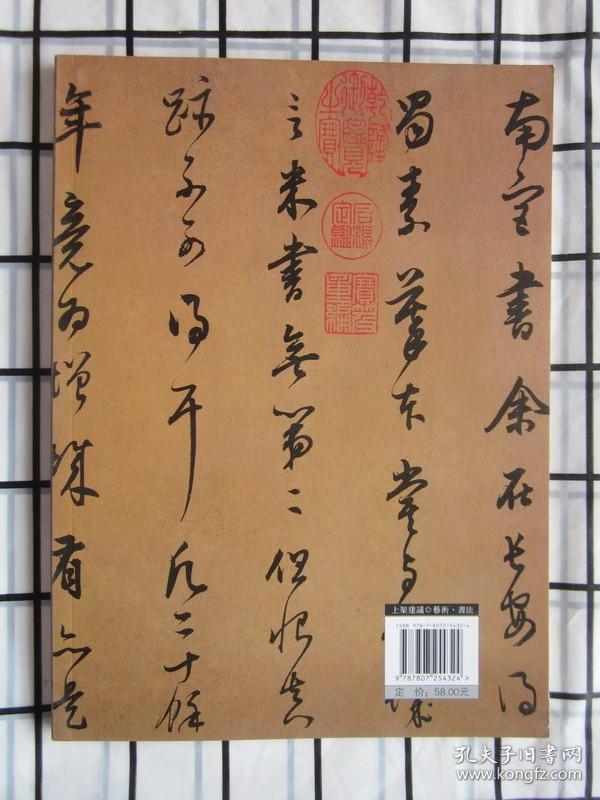 南宮書余在長安得
蜀素摹本嘗与
城
言米書無第二但恨真
跡不可得耳凡二十餘
年竟為增城有亦是
乾隆御覽之寶
石渠定鑑
寶笈重編
上架建議◎藝術·書法
ISBN 978-7-80725-432-4
9 787807 254324 >
定 价：58.00元
孔夫子旧书网
www.kongfz.com